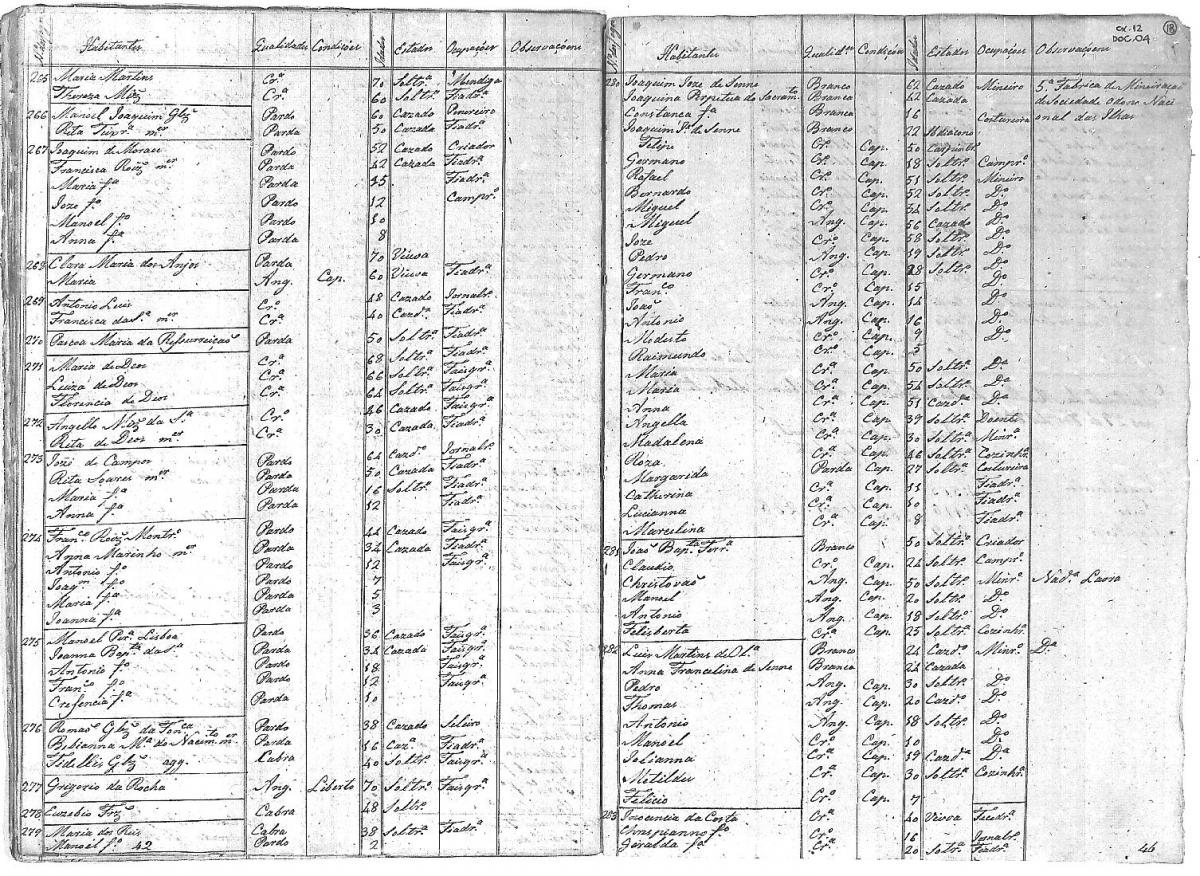 Habitantes Qualidades Condições Idades Estados Ocupações Observações
265 Maria Martins Crª 70 Soltrª Mendiga
Thereza Miz Crª 60 Soltrª Fiadrª
266 Manoel Joaquim Glz Pardo 60 Cazado Peneireiro
Rita Figrª mer Parda 50 Cazada Fiadrª
267 Joaquim de Moraes Pardo 52 Cazado Criador
Francisca Roiz mer Parda 42 Cazada Fiadrª
Maria fª Parda 15 Fiadrª
Joze fº Pardo 12 Camprº
Manoel fº Pardo 10
Anna fª Parda 8
268 Clara Maria dos Anjos Parda 70 Viuva
Maria Ang. Cap. 60 Viuva Fiadrª
269 Antonio Luis Crº 48 Cazado Jornalrº
Francisca da Sª mer Crª 40 Cazdª Fiadrª
270 Pascoa Maria da Ressurreição Parda 50 Soltrª Fiadrª
271 Maria de Deos Crª 68 Soltrª Fiadrª
Luiza de Deos Crª 66 Soltrª Faisgrª
Florencia de Deos Crª 64 Soltrª Faisgrª
272 Angello Nz da Sª Crº 46 Cazado Faisgrª
Rita de Deos mer Crª 30 Cazada Fiadrª
273 José de Campos Pardo 64 Cazdº Jornalrº
Rita Soares mer Parda 50 Cazada Fiadrª
Maria fª Parda 16 Soltrª Fiadrª
Anna fª Parda 12 Fiadrª
274 Francº Roiz Montrº Pardo 44 Cazado Faisgrª
Anna Marinho mer Parda 34 Cazada Fiadrª
Antonio fº Pardo 12 Faisgrª
Joaqm fº Pardo 7
Maria fª Parda 5
Joanna fª Parda 3
275 Manoel Perª Lisboa Pardo 36 Cazado Faisgrª
Joanna Bapta da Sª Parda 34 Cazada Faisgrª
Antonio fº Pardo 18 Faisgrª
Francº fº Pardo 12 Faisgrª
Cresencia fª Parda 10
276 Romaõ Glz da Fonca Pardo 38 Cazado Seleiro
Bibianna Mª do Nacimto mer Parda 16 Cazª Fiadrª
Fidellis Glz agg. Cabra 40 Soltrº Faisgrª
277 Grigorio da Rocha Ang. Liberto 70 Soltrº Faisgrª
278 Euzebio Frz Cabra 48 Soltrº
279 Maria dos Reis Cabra 38 Soltrª Fiadrª
Manoel fº 42 Pardo 2
cx.12
DOC.04
18
Habitantes Qualidês Condição Idades Estados Ocupações Observações
280 Joaquim Joze de Senne Branco 62 Cazado Mineiro 5ª Fabrica de Mineiração
Joaquina Perpetua do Sacramto Branca 42 Cazada de Sociedade
Constanca fª Branca 16 Costureira onal das Ilhas
Joaquim Sª de Senne Branco 22
Felipe Crº Cap. 50 Carpintrº
Germano Crº Cap. 18 Soltrº Camprº
Rafael Crº Cap. 51 Soltrº Mineiro
Bernardo Crº Cap. 52 Soltrº Dº
Miguel Crº Cap. 54 Soltrº Dº
Miguel Ang. Cap. 56 Cazado Dº
Joze Crº Cap. 58 Soltrº Dº
Pedro Ang. Cap. 19 Soltrº Dº
Germano Crº Cap. 28 Soltrº Dº
Francº Crº Cap. 15 Dº
Joaõ Ang. Cap. 14 Dº
Antonio Ang. Cap. 16 Dº
Modesto Crº Cap. 9 Dº
Raimundo Crº Cap. 3
Maria Crª Cap. 50 Soltrª Dª
Maria Crª Cap. 54 Soltrª Dª
Anna Crª Cap. 51 Cazdª Dº
Angella Crª Cap. 39 Soltrª Doente
Madalena Crª Cap. 30 Soltrª Minrª
Roza Crª Cap. 46 Soltrª Cozinhrª
Margarida Parda Cap. 27 Soltrª Costureira
Catherina Crª Cap. 11 Fiadrª
Lucianna Crª Cap. 10 Fiadrª
Marcelina Crª Cap. 8 Fiadrª
281 Joaõ Bapta Ferrª Branco 50 Soltrº Criador
Claudio Crº Cap. 24 Soltrº Camprº
Christovaõ Ang. Cap. 50 Soltrº Minrº Nadª Lavra
Manoel Ang. Cap. 20 Soltrº Dº
Antonio Ang. Cap. 18 Soltrº Dº
Felisberta Crª Cap. 25 Soltrª Cozinhrª
282 Luis Martins de Olª Branco 24 Cazdº Minrº Dª
Anna Francelina de Senne Branca 24 Cazada
Pedro Ang. Cap. 30 Soltrº Dº
Thomas Ang. Cap. 20 Cazdº Dº
Antonio Ang. Cap. 18 Soltrº Dº
Manoel Crº Cap. 10 Dº
Jolianna Crª Cap. 19 Cazdª Dª
Metildes Crª Cap. 30 Soltrª Cozinhrª
Felicio Crº Cap. 7
283 Inocencia da Costa Crª 40 Viuva Tecedrª
Chrispianno fº Crº 16 Jornalrº
Geralda fª Crª 20 Soltrª Fiadrª
46